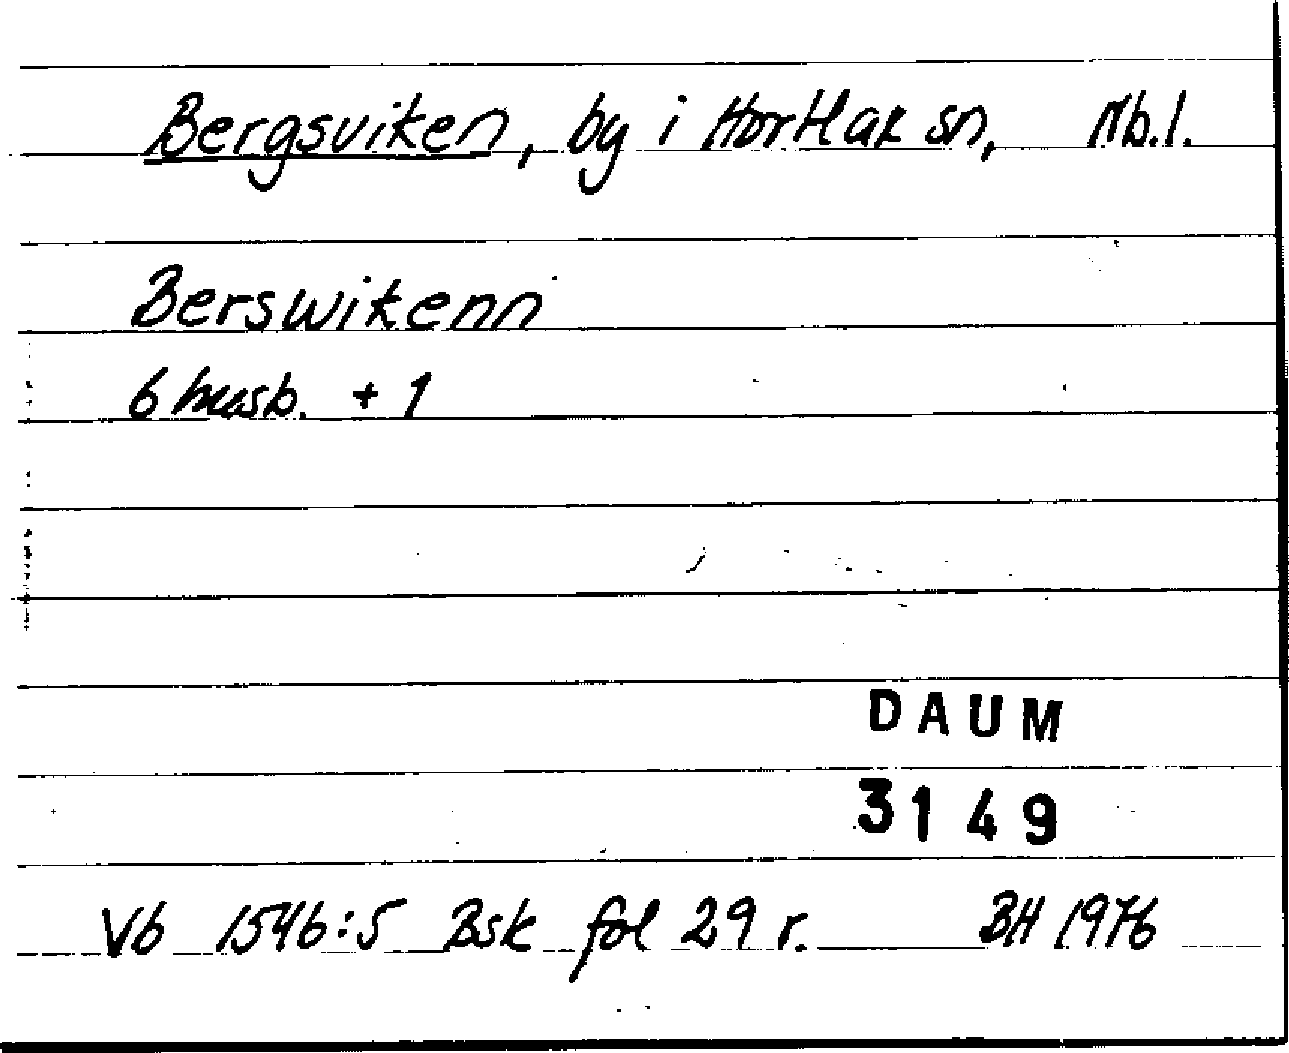 Bergsviken, by i Hortlax sn, Nb.l.
Berswikenn
6 husb. + 1
DAUM
3149
Vb 1546:5 Bsk fol 29 r. BH 1976